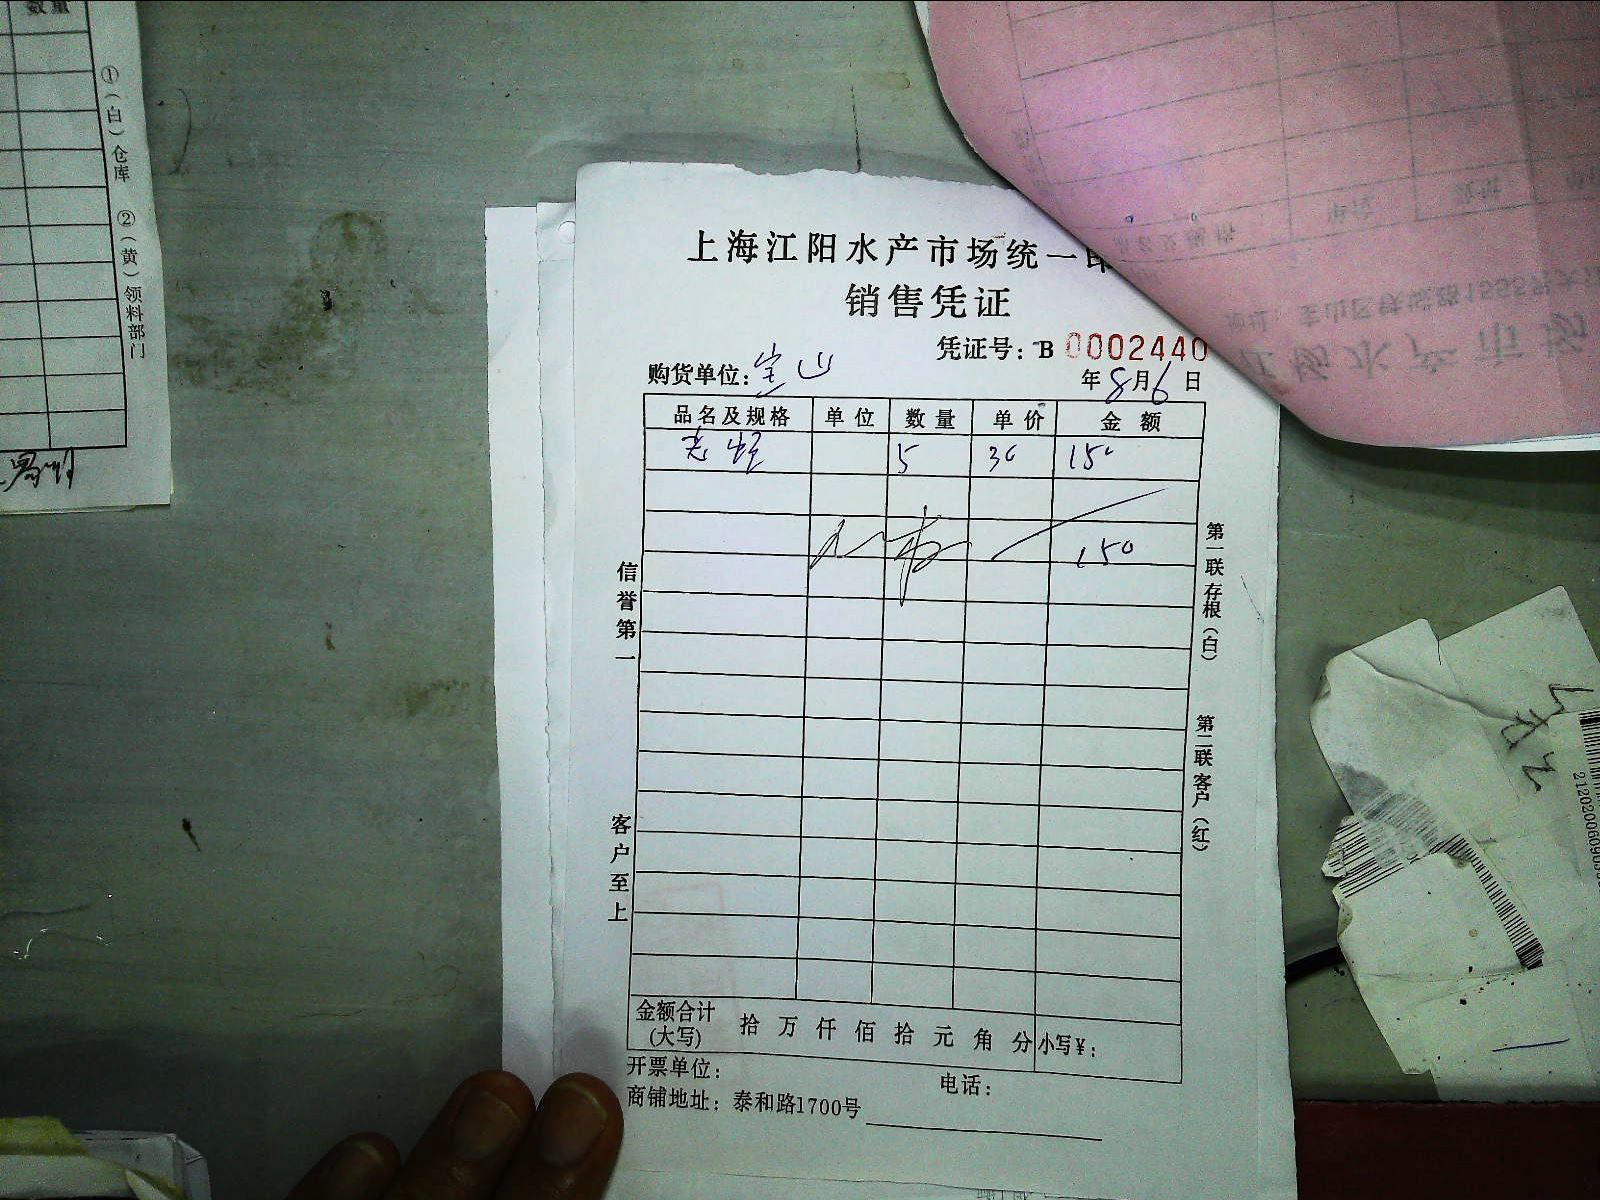 上海江阳水产市场统一印
销售凭证
凭证号：B 0002440
购货单位：宝山 年8月6日
品名及规格 单位 数量 单价 金额
5 30 150
150
信誉第一
客户至上
第一联存根（白）
第二联客户（红）
金额合计(大写) 拾万仟佰拾元角分 小写¥：
开票单位： 电话：
商铺地址：泰和路1700号
数量
①（白）仓库 ②（黄）领料部门